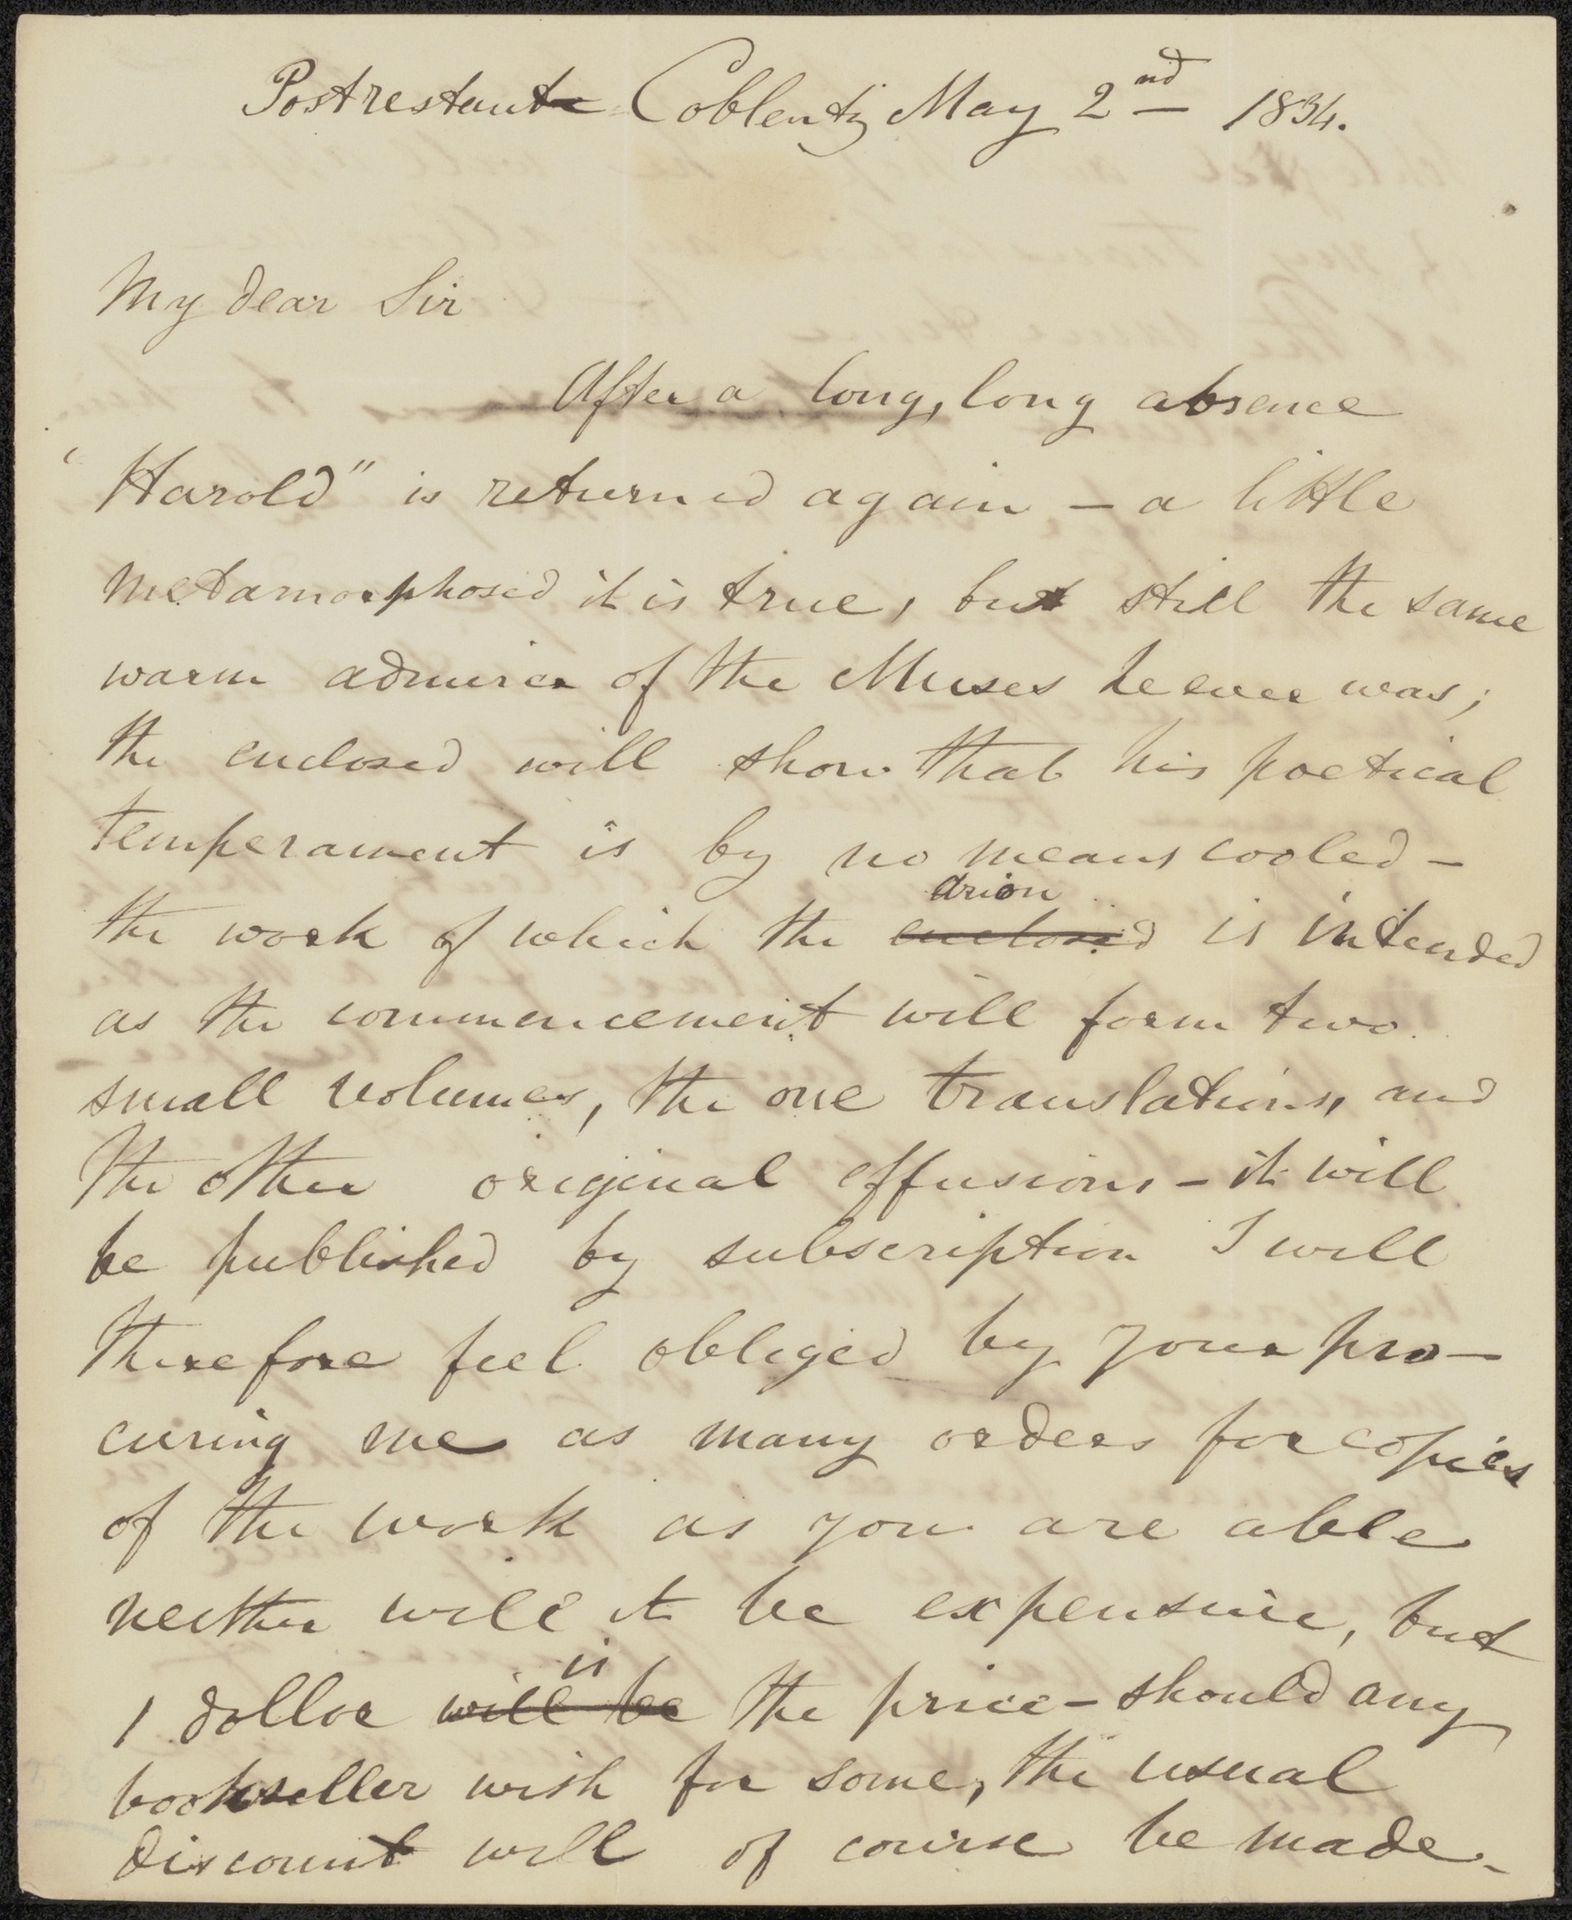 Postrestante Coblentz May 2nd 1834.
My dear Sir
After a long, long absence
"Harold" is returned again – a little
metamorphosed it is true, but still the same
warm admirer of the Muses he ever was;
the enclosed will show that his poetical
temperament is by no means cooled –
arion
the work of which the enclosed is intended
as the commencement will form two
small volumes, the one translations, and
the other original effusions – it will
be published by subscription I will
therefore feel obliged by your pro–
curing me as many orders for copies
of the work as you are able
neither will it be expensive, but
is
1 dollar will be the price – should any
bookseller wish for some, the usual
discount will of course be made.